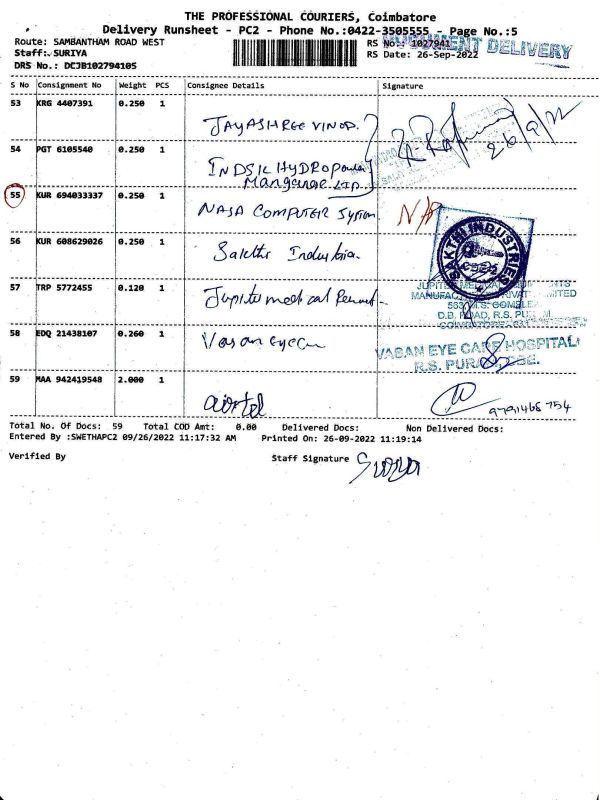 THE PROFESSIONAL COURIERS, Coimbatore
Delivery Runsheet - PC2 - Phone No.:0422-3505555 - Page No.:5
Route: SAMBANTHAM ROAD WEST
RS No.: 1027941
DOCUMENT DELIVERY
Staff: SURIYA
RS Date: 26-Sep-2022
DRS No.: DCJB102794105
S No Consignment No Weight PCS Consignee Details Signature
53 KRG 4407391 0.250 1
JAYASHREE VINOD.
26/9/22
54 PGT 6105540 0.250 1
INDSIL HYDROPower
Manganese LTD
55 KUR 694033337 0.250 1
NASA COMPUTER System
56 KUR 608629026 0.250 1
Sakthi Industria.
SAKTHI INDUSTRIES
57 TRP 5772455 0.120 1
Jupiter medical
JUPITER
D.B. ROAD, R.S. PURAM
COIMBATORE
58 EDQ 21438107 0.260 1
Vasan eyecare
VASAN EYE CARE HOSPITAL
R.S. PURAM, CBE.
59 MAA 942419548 2.000 1
airtel
9791468754
Total No. Of Docs: 59 Total COD Amt: 0.00 Delivered Docs: Non Delivered Docs:
Entered By :SWETHAPC2 09/26/2022 11:17:32 AM Printed On: 26-09-2022 11:19:14
Verified By
Staff Signature Suriya